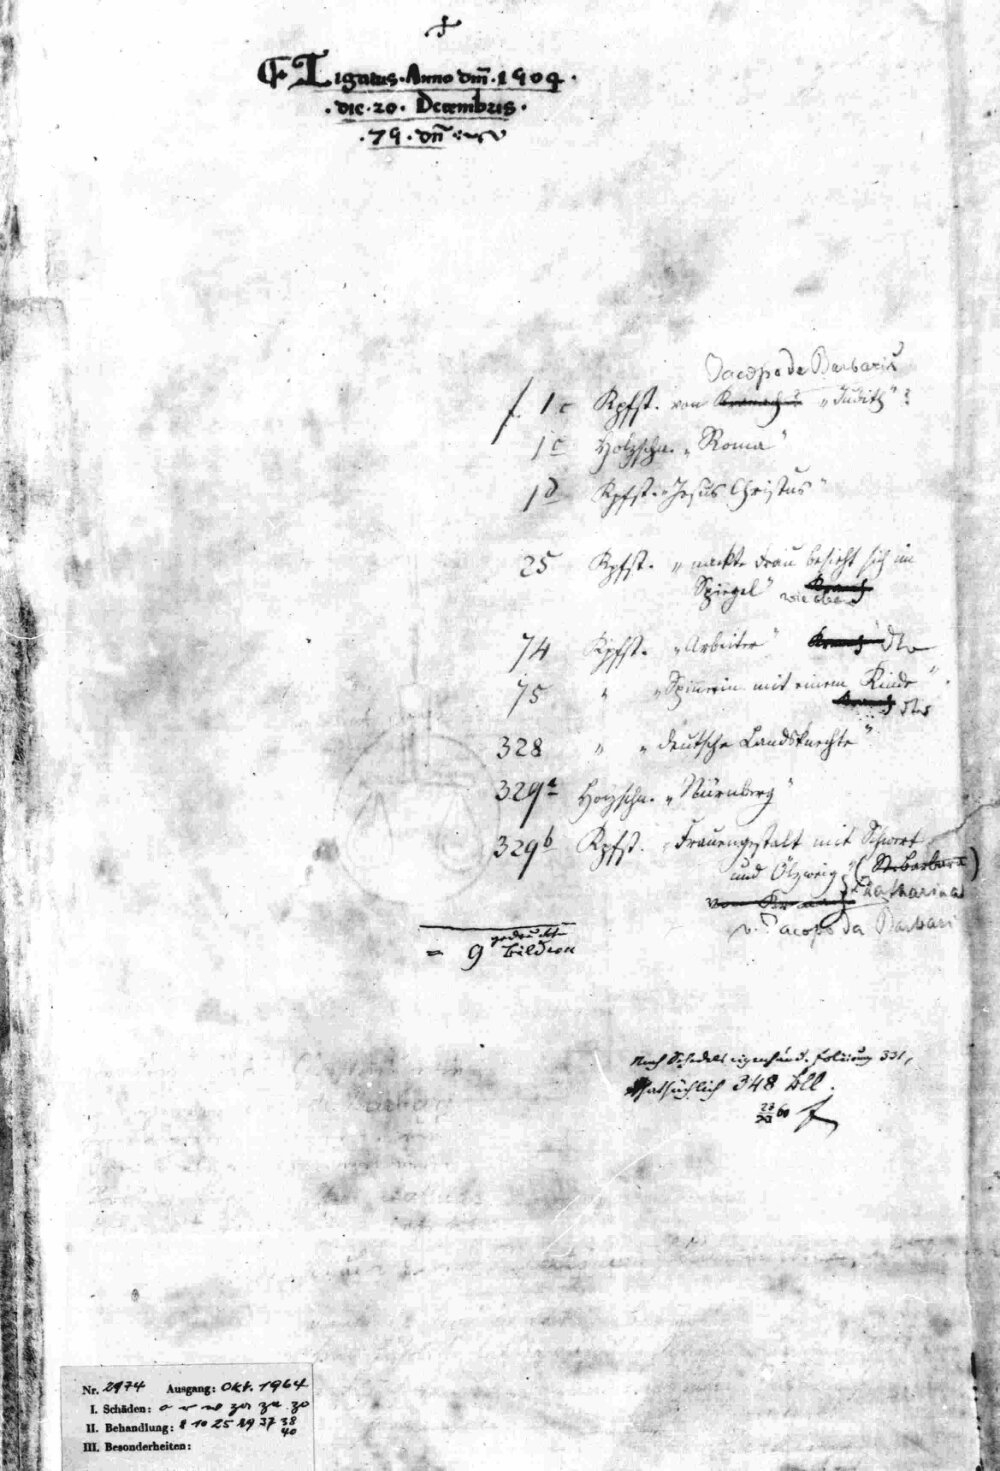 Ligatus. Anno dm̄. 1904.
. die. 20. Decembris.
. 79. dn̄
Jacopo de Barbaris
f. 1c Kpfst. von Kranach? „Judith“ ?
1c Holzschn. „Roma“
1d Kpfst. „Jesus Christus“
25 Kpfst. „nackte Frau besieht sich im
Spiegel“ Kranach
wie oben
74 Kpfst. „Arbeiter“ Kranach dto
75 " „Spinnerin mit einem Kinde“.
Kranach dto
328 " „deutsche Landsknechte“
329a Holzschn. „Nürnberg“
329b Kpfst. „Frauengestalt mit Schwert
und Ölzweig“ (St. Barbara)
von Kranach Katharina
v. Jacopo da Barbari
= 9 gedruckte Bilder
Nach Schedels eigenhänd. Foliierung 331,
thatsächlich 348 Bll.
Nr. 2974 Ausgang: Okt. 1964
I. Schäden:
II. Behandlung: 8 10 25 29 37 38 40
III. Besonderheiten: